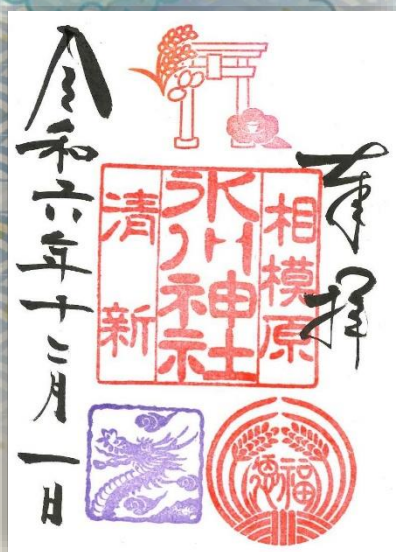 奉拝
相模原
氷川神社
清新
福
令和六年十二月一日